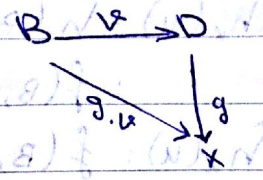 B v D
g.v g
X